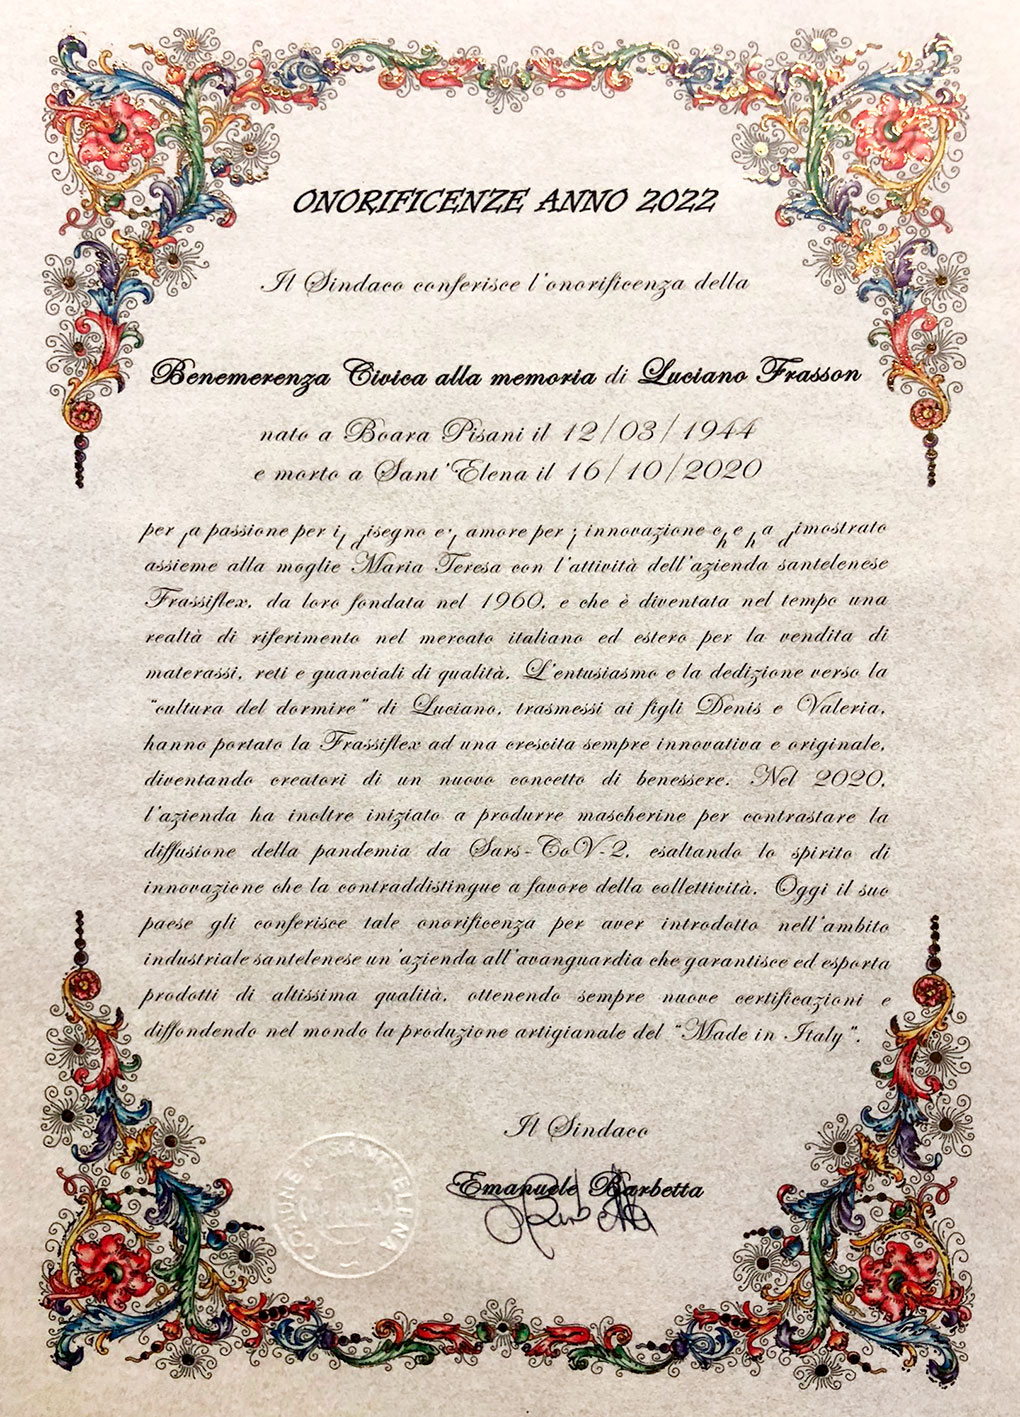 ONORIFICENZE ANNO 2022
Il Sindaco conferisce l'onorificenza della
Benemerenza Civica alla memoria di Luciano Frasson
nato a Boara Pisani il 12/03/1944
e morto a Sant'Elena il 16/10/2020
per la passione per il disegno e l'amore per l'innovazione che ha dimostrato
assieme alla moglie Maria Teresa con l'attività dell'azienda santelenese
Frassiflex, da loro fondata nel 1960, e che è diventata nel tempo una
realtà di riferimento nel mercato italiano ed estero per la vendita di
materassi, reti e guanciali di qualità. L'entusiasmo e la dedizione verso la
"cultura del dormire" di Luciano, trasmessi ai figli Denis e Valeria,
hanno portato la Frassiflex ad una crescita sempre innovativa e originale,
diventando creatori di un nuovo concetto di benessere. Nel 2020,
l'azienda ha inoltre iniziato a produrre mascherine per contrastare la
diffusione della pandemia da Sars-CoV-2, esaltando lo spirito di
innovazione che la contraddistingue a favore della collettività. Oggi il suo
paese gli conferisce tale onorificenza per aver introdotto nell'ambito
industriale santelenese un'azienda all'avanguardia che garantisce ed esporta
prodotti di altissima qualità, ottenendo sempre nuove certificazioni e
diffondendo nel mondo la produzione artigianale del "Made in Italy".
Il Sindaco
Emanuele Barbetta